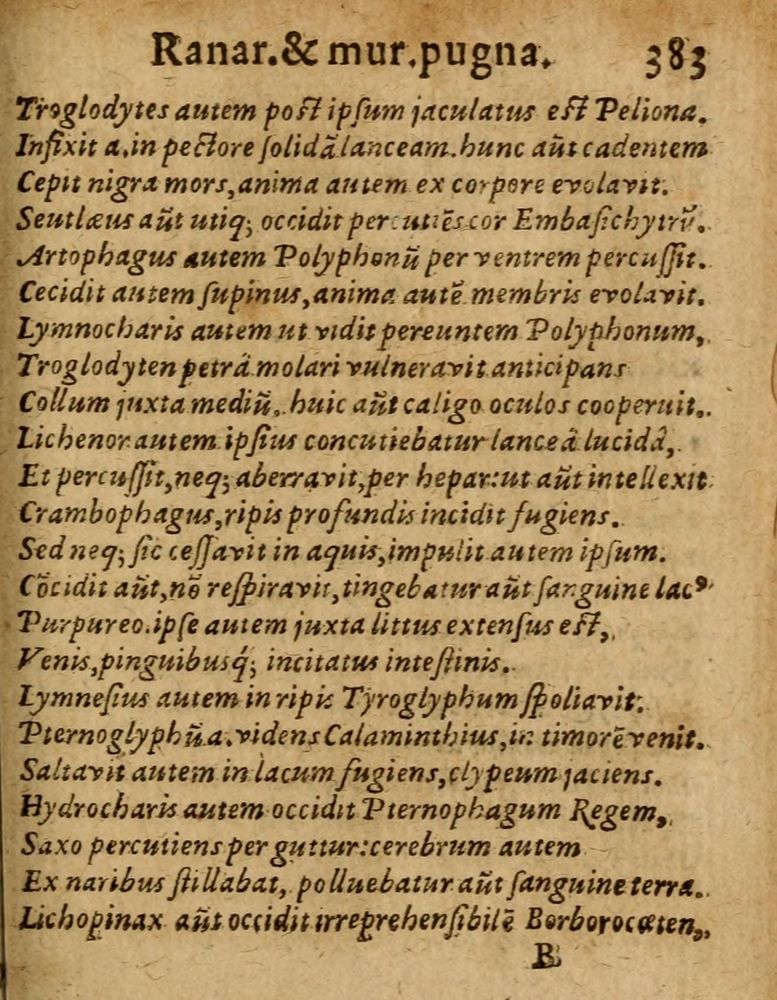 Ranar. & mur. pugna. 383
Troglodytes autem poſt ipſum jaculatus eſt Peliona.
Infixit a. in pectore ſolidã lanceam. hunc aũt cadentem
Cepit nigra mors, anima autem ex corpore evolavit.
Seutlæus aũt utiq; occidit percutiẽs cor Embaſichytrũ.
Artophagus autem Polyphonũ per ventrem percuſſit.
Cecidit autem ſupinus, anima autẽ membris evolavit.
Lymnocharis autem ut vidit pereuntem Polyphonum,
Troglodyten petrâ molari vulneravit anticipans
Collum juxta mediũ, huic aũt caligo oculos cooperuit.
Lichenor autem ipſius concutiebatur lanceâ lucidâ,
Et percuſſit, neq; aberravit, per hepar: ut aũt intellexit
Crambophagus, ripis profundis incidit fugiens.
Sed neq; ſic ceſſavit in aquis, impulit autem ipſum.
Cõcidit aũt, nõ reſpiravit, tingebatur aũt ſanguine lacꝰ
Purpureo. ipſe autem juxta littus extenſus eſt,
Venis, pinguibusq́; incitatus inteſtinis.
Lymneſius autem in ripis Tyroglyphum ſpoliavit:
Pternoglyphũ a. videns Calaminthius, in timorẽ venit.
Saltavit autem in lacum fugiens, clypeum jaciens.
Hydrocharis autem occidit Pternophagum Regem,
Saxo percutiens per guttur: cerebrum autem
Ex naribus ſtillabat, polluebatur aũt ſanguine terra.
Lichopinax aũt occidit irreprehenſibilẽ Borborocœten,
B